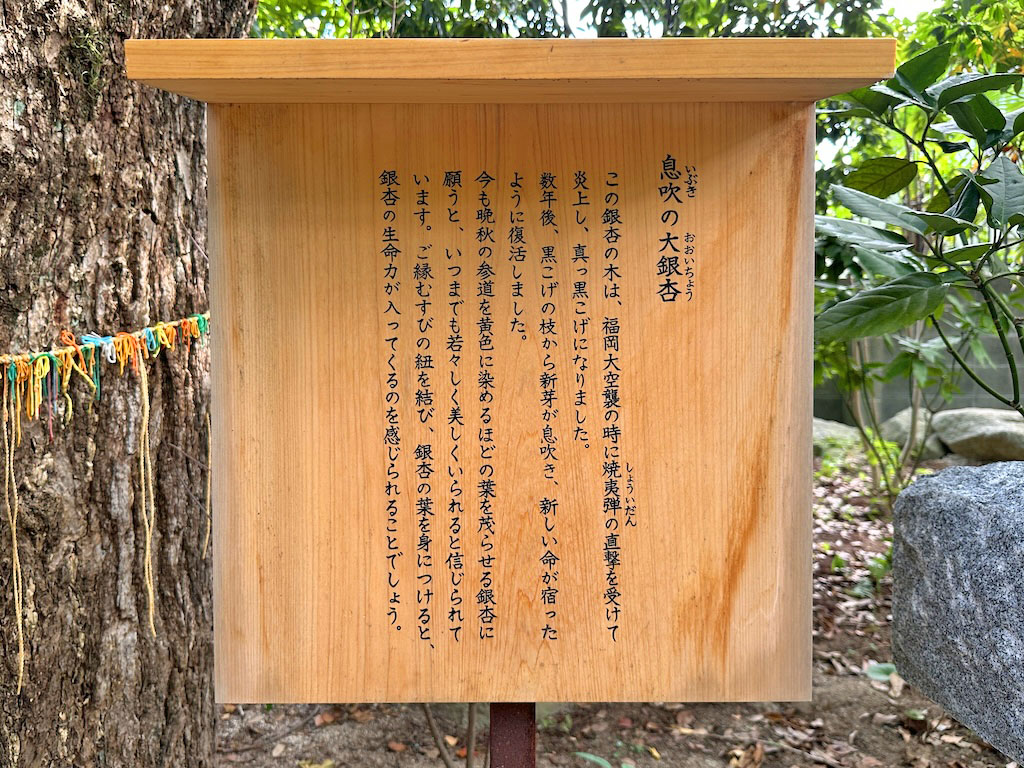 息吹の大銀杏
この銀杏の木は、福岡大空襲の時に焼夷弾の直撃を受けて
炎上し、真っ黒こげになりました。
数年後、黒こげの枝から新芽が息吹き、新しい命が宿った
ように復活しました。
今も晩秋の参道を黄色に染めるほどの葉を茂らせる銀杏に
願うと、いつまでも若々しく美しくいられると信じられて
います。ご縁むすびの紐を結び、銀杏の葉を身につけると、
銀杏の生命力が入ってくるのを感じられることでしょう。
いぶき
おおいちょう
しょういだん